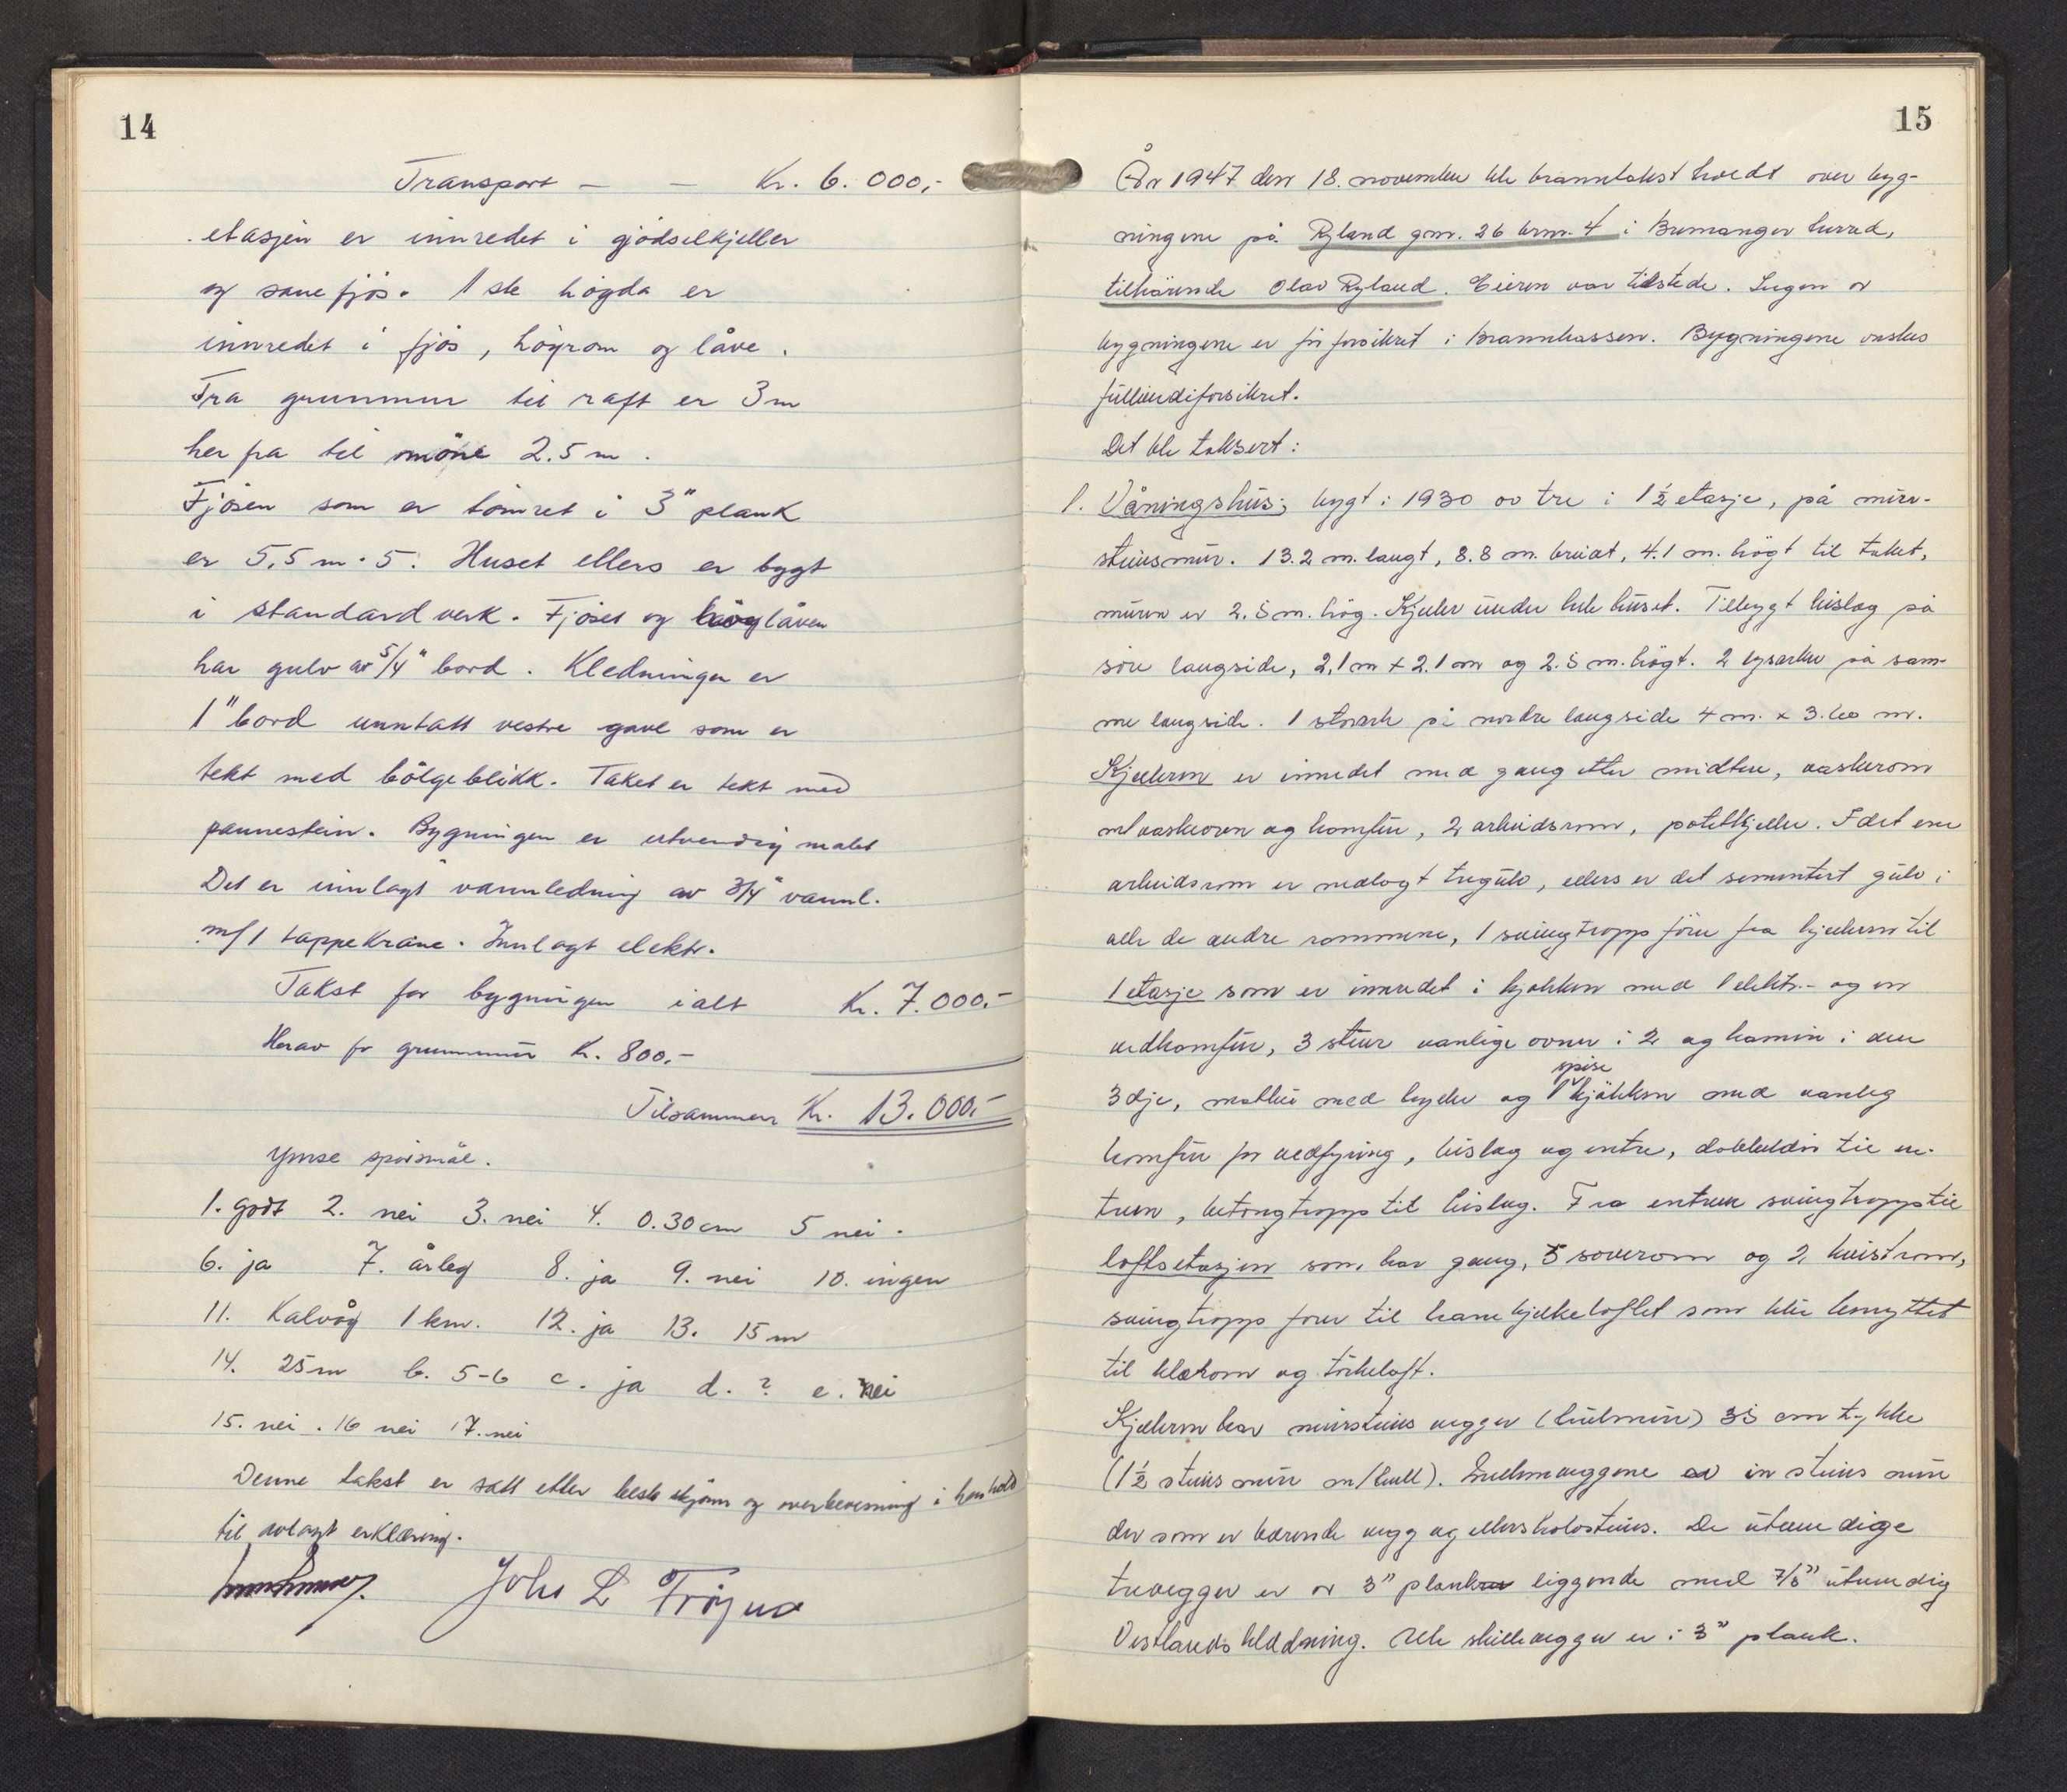 14
Transport - - Kr. 6.000,-
etasjen er innredet i gjödselkjeller
og sauefjös. 1ste högda er
innredet i fjös, höyrom og låve.
Fra grunnmur til raft er 3 m
her fra til möne 2.5 m.
Fjösen som er tömret i 3" plank
er 5,5 m · 5. Huset ellers er bygt
i standardverk. Fjöset og höylåven
har gulv av 5/4" bord. Kledningen er
1" bord unntatt vestre gavl som er
tekt med bölgeblikk. Taket er tekt med
pannestein. Bygningen er utvendig malet
Det er innlagt vannledning av 3/4" vannl.
m/1 tappekrane. Innlagt elektr.
Takst for bygningen ialt Kr. 7.000.-
Herav for grunnmur Kr. 800,-
Tilsammen Kr. 13.000.-
Ymse spörsmål.
1. godt 2. nei 3. nei 4. 0.30 cm 5 nei.
6. ja 7. årleg 8. ja 9. nei 10. ingen
11. Kalvåg 1 km. 12. ja 13. 15 m
14. 25 m b. 5-6 c. ja d. ? e. nei
15. nei. 16 nei 17. nei
Denne takst er satt etter beste skjönn og overbevisning i henhold
til avlagt erklæring.
Johs L Fröyna
15
År 1947 den 18. november ble branntakst holdt over byg-
ningene på Ryland gnr. 26 brnr. 4 i Bremanger herred,
tilhörende Olav Ryland. Eieren var tilstede. Ingen av
bygningene er för forsikret i Brannkassen. Bygningene önskes
fullverdiforsikret.
Det ble taksert:
1. Våningshus; bygt i 1930 av tre i 1½ etasje, på mur-
steinsmur. 13.2 m. langt, 8.8 m. breidt, 4.1 m. högt til taket,
muren er 2.5 m. hög. Kjeller under hele huset. Tilbygt bislag på
söre langside, 2,1 m x 2.1 m og 2.5 m. högt. 2 lysarker på sam-
me langside. 1 stor ark på nordre langside 4 m. x 3.60 m.
Kjelleren er innredet med gang etter midten, vaskerom
m/vaskeovn og komfur, 2 arbeidsrom, potetkjeller. I det ene
arbeidsrom er nedlagt tregulv, ellers er det sementert gulv i
alle de andre rommene, 1 svingtropp förer fra kjelleren til
1 etasje som er innredet i kjökken med 1 elektr.- og en
vedkomfur, 3 stuer vanlige ovner i 2 og kamin i den
3dje, matbu med hyller og 1 spisekjökken med vanleg
komfur for vedfyring, bislag og entre, dobbeldör til en-
treen, betongtropp til bislag. Fra entreen svingtropp til
loftsetasjen som har gang, 5 soverom og 2 kvistrom,
svingtropp förer til hanebjelkeloftet som blir benyttet
til klærom og törkeloft.
Kjelleren har mursteins vegger (hulmur) 35 cm tykke
(1½ steins mur m/hull). Mellemveggene av en steins mur
der som er bærende vegg og ellers halvsteins. De utvendige
trevegger er av 3" plank liggende med 7/8" utvendig
Vestlandskledning. Alle skillevegger er i 3" plank.